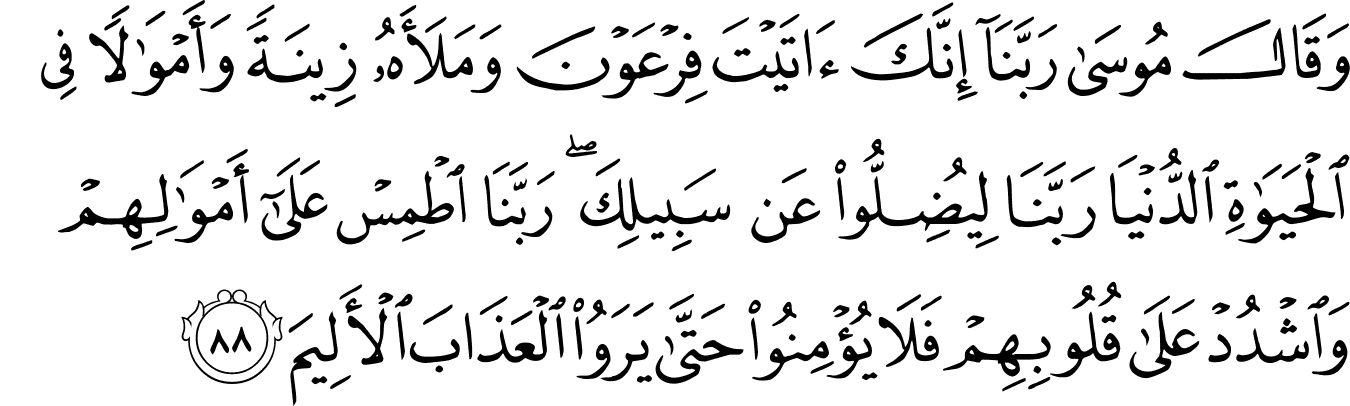 وَقَالَ مُوسَىٰ رَبَّنَآ إِنَّكَ ءَاتَيْتَ فِرْعَوْنَ وَمَلَأَهُۥ زِينَةً وَأَمْوَٰلًا فِى
ٱلْحَيَوٰةِ ٱلدُّنْيَا رَبَّنَا لِيُضِلُّوا۟ عَن سَبِيلِكَ ۖ رَبَّنَا ٱطْمِسْ عَلَىٰٓ أَمْوَٰلِهِمْ
وَٱشْدُدْ عَلَىٰ قُلُوبِهِمْ فَلَا يُؤْمِنُوا۟ حَتَّىٰ يَرَوُا۟ ٱلْعَذَابَ ٱلْأَلِيمَ ٨٨